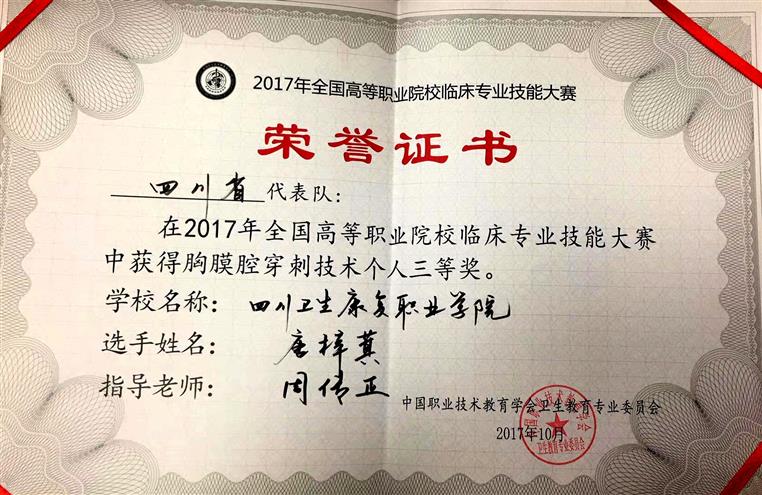 2017年全国高等职业院校临床专业技能大赛
荣誉证书
四川省 代表队：
在2017年全国高等职业院校临床专业技能大赛
中获得胸膜腔穿刺技术个人三等奖。
学校名称： 四川卫生康复职业学院
选手姓名： 唐梓蓂
指导老师： 周倩正
中国职业技术教育学会卫生教育专业委员会
2017年10月
中国职业技术教育学会
卫生教育专业委员会